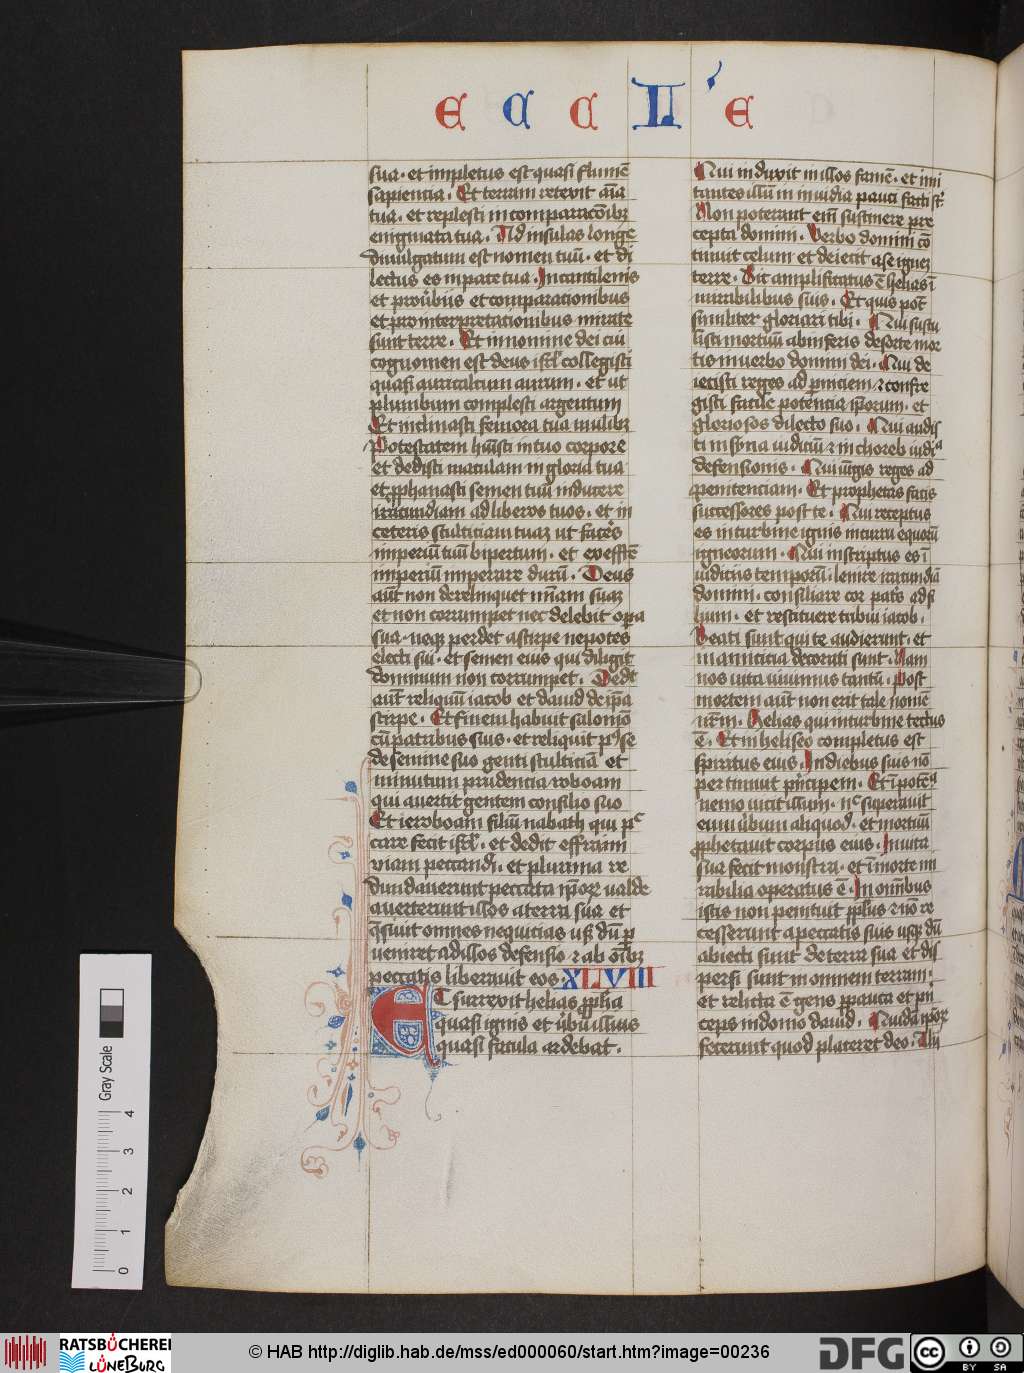 E C C LI' E
sua · et impletus est quasi flumē
sapiencia . Et terram retexit aīa
tua · et replesti in comparacōibꝫ
enigmata tua . Ad insulas longe
diuulgatum est nomen tuū · et di
lectus es in pace tua . In cantilenis
et prouˀbiis et comparationibus
et pro interpretationibus mirate
sunt terre . Et in nomine dei cui
cognomen est deus isrl̄ collegisti
quasi auricalcum aurum · et ut
plumbum complesti argentum
Et inclinasti femora tua mulibꝫ
Potestatem huisti in tuo corpore
et dedisti maculam in gloria tua
et ꝓphanasti semen tuū inducere
iracundiam ad liberos tuos · et in
ceteris stulticiam tuaꝫ ut facēs
imperiū tuū bipertum · et ex effrē
imperiū imperare durū . Deus
aūt non derelinquet mīam suaꝫ
et non corrumpet nec delebit opa
sua · neqꝫ perdet a stirpe nepotes
electi sui · et semen eius qui diligit
dominum non corrumpet . Dedt
aūt reliquū iacob et dauid de ipa
stirpe . Et finem habuit salomō
cū patribus suis · et reliquit pˀ se
de semine suo genti stulticiā et
minutum prudencia roboam
qui auertit gentem consilio suo
Et ieroboam filiū nabath qui pc
care fecit isrl̄ · et dedit effraim
viam peccandi · et plurima re
dundauerunt peccata ipoꝝ valde
auerterunt illos a terra sua et
q̄siuit omnes nequitias usꝫ dū p
ueniret ad illos defensio ⁊ ab oībꝫ
peccatis liberauit eos · XLVIII
ET surrexit helias ꝓpha
quasi ignis et ūbū illius
quasi facula ardebat .
Qui induxit in illos famē · et imi
tantes illū in inuidia pauci facti st̄
Non poterant em̄ sustinere pre
cepta domini . Verbo domini cō
tinuit celum et deiecit a se igneꝫ
terre . Sic amplificatus ē helias ī
mirabilibus suis . Et quis potē
similiter gloriari tibi . Qui sustu
listi mortuū ab inferis de sorte mor
tis in uerbo domini dei . Qui de
iecisti reges ad pniciem ⁊ confre
gisti facile potencia ipsorum · et
gloriosos de lecto suo . Qui audis
ti in syna iudiciū ⁊ in choreb iudia
defensionis . Qui ungis reges ad
penitenciam . Et prophetas facis
successores post te . Qui receptus
es in turbine ignis in curru equorū
igneorum . Qui inscriptus es ī
iudiciis temporū . lenire iracundiā
domini . conciliare cor patˀs ad fi
lium · et restituere tribū iacob .
Beati sunt qui te audierunt · et
in amicicia decorati sunt . Nam
nos uita uiuimus tantū . Post
mortem aūt non erit tale nomē
nr̄m . Helias qui in turbine tectus
ē . Et in heliseo completus est
spiritus eius . In diebus suis nō
pertimuit pˀncipem . Et ī potēa
nemo uicit illum · nc superauit
eum ūbum aliquod · et mortuū
ꝓphetauit corpus eius . In uita
sua fecit monstra · et ī morte mi
rabilia operatus ē . In omībus
istis non penituit pplus ⁊ nō re
cesserunt a peccatis suis usqꝫ dū
abiecti sunt de terra sua et dis
persi sunt in omnem terram ·
et relicta ē gens ppauca et pn
ceps in domo dauid . Quidā ipoꝝ
fecerunt quod placeret deo . Alii
Gray Scale
0 1 2 3 4
RATSBÜCHEREI
LÜNEBURG
© HAB http://diglib.hab.de/mss/ed000060/start.htm?image=00236
DFG
cc BY SA